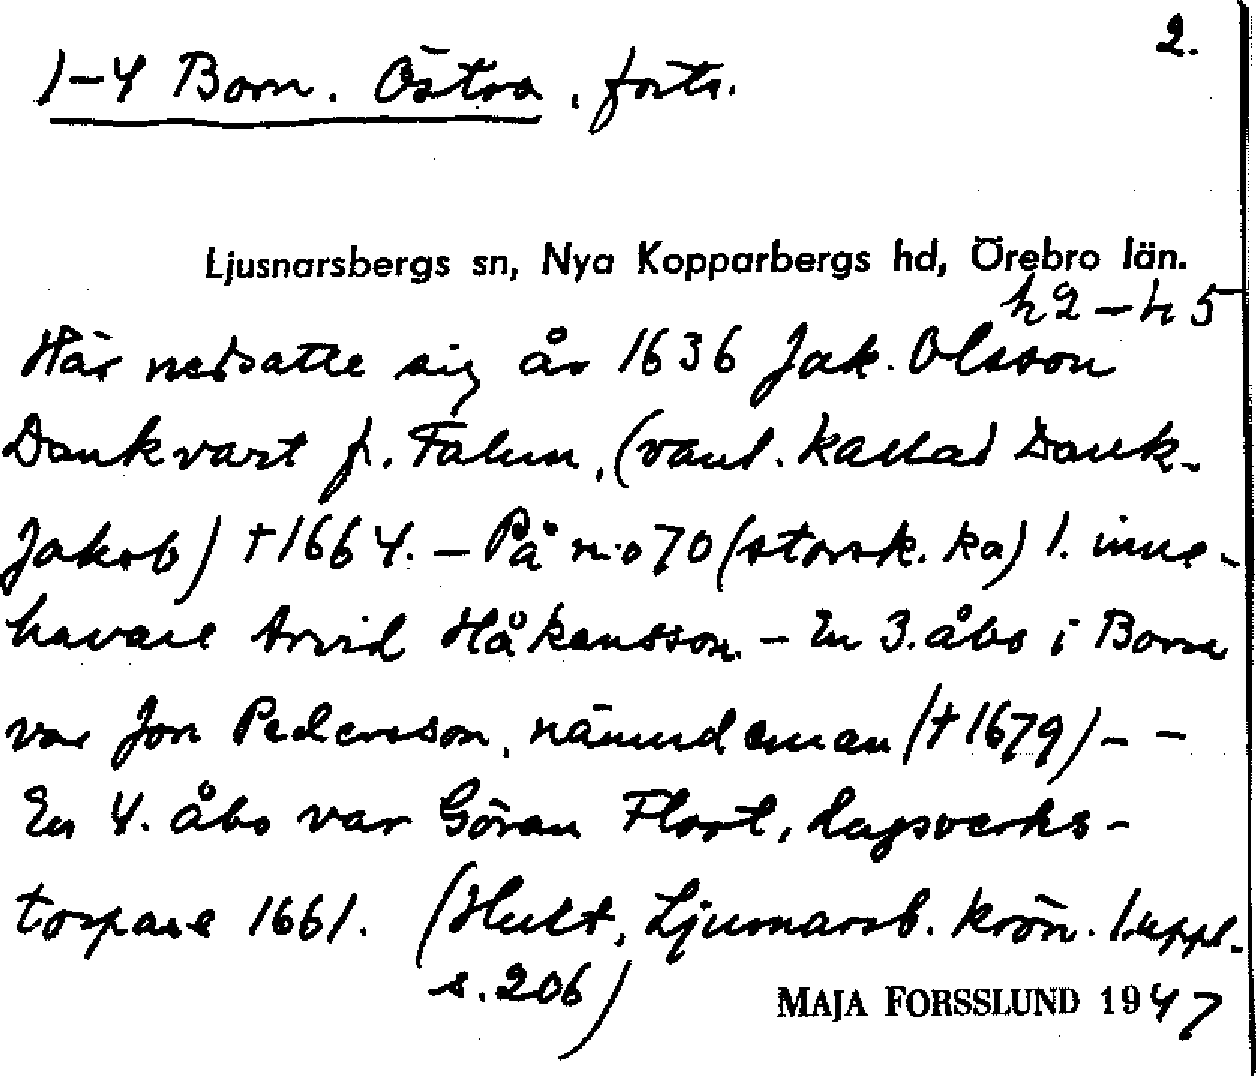 2.
1-4 Born. Östra, forts.
Ljusnarsbergs sn, Nya Kopparbergs hd, Örebro län.
h2 - h5
Här nedsatte sig år 1636 Jak. Olsson
Dankvart fr. Falun, (vanl. kallad Dank-
Jakob) †1664. - På n:o 70 (storsk. ka) 1. inne-
havare Arvid Håkansson. - En 3. åbo i Born
var Jon Pedersson, nämndeman (†1679) - -
En 4. åbo var Göran Flort, dagsverks-
torpare 1661. (Hult, Ljusnarsb. krön. 1. uppl.
s. 206)
MAJA FORSSLUND 1947